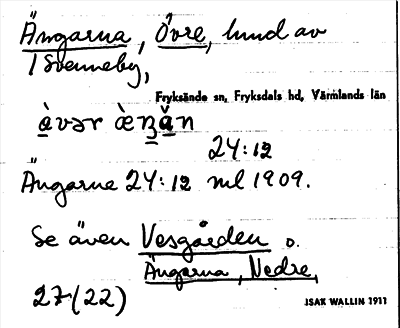 Ängarna, Övre, hmd av
/ Svenneby,
Fryksände sn, Fryksdals hd, Värmlands län
24:12
Ängarne 24:12 ml 1909.
Se även Vesgården o.
Ängarna, Nedre,
27(22)
ISAK WALLIN 1911